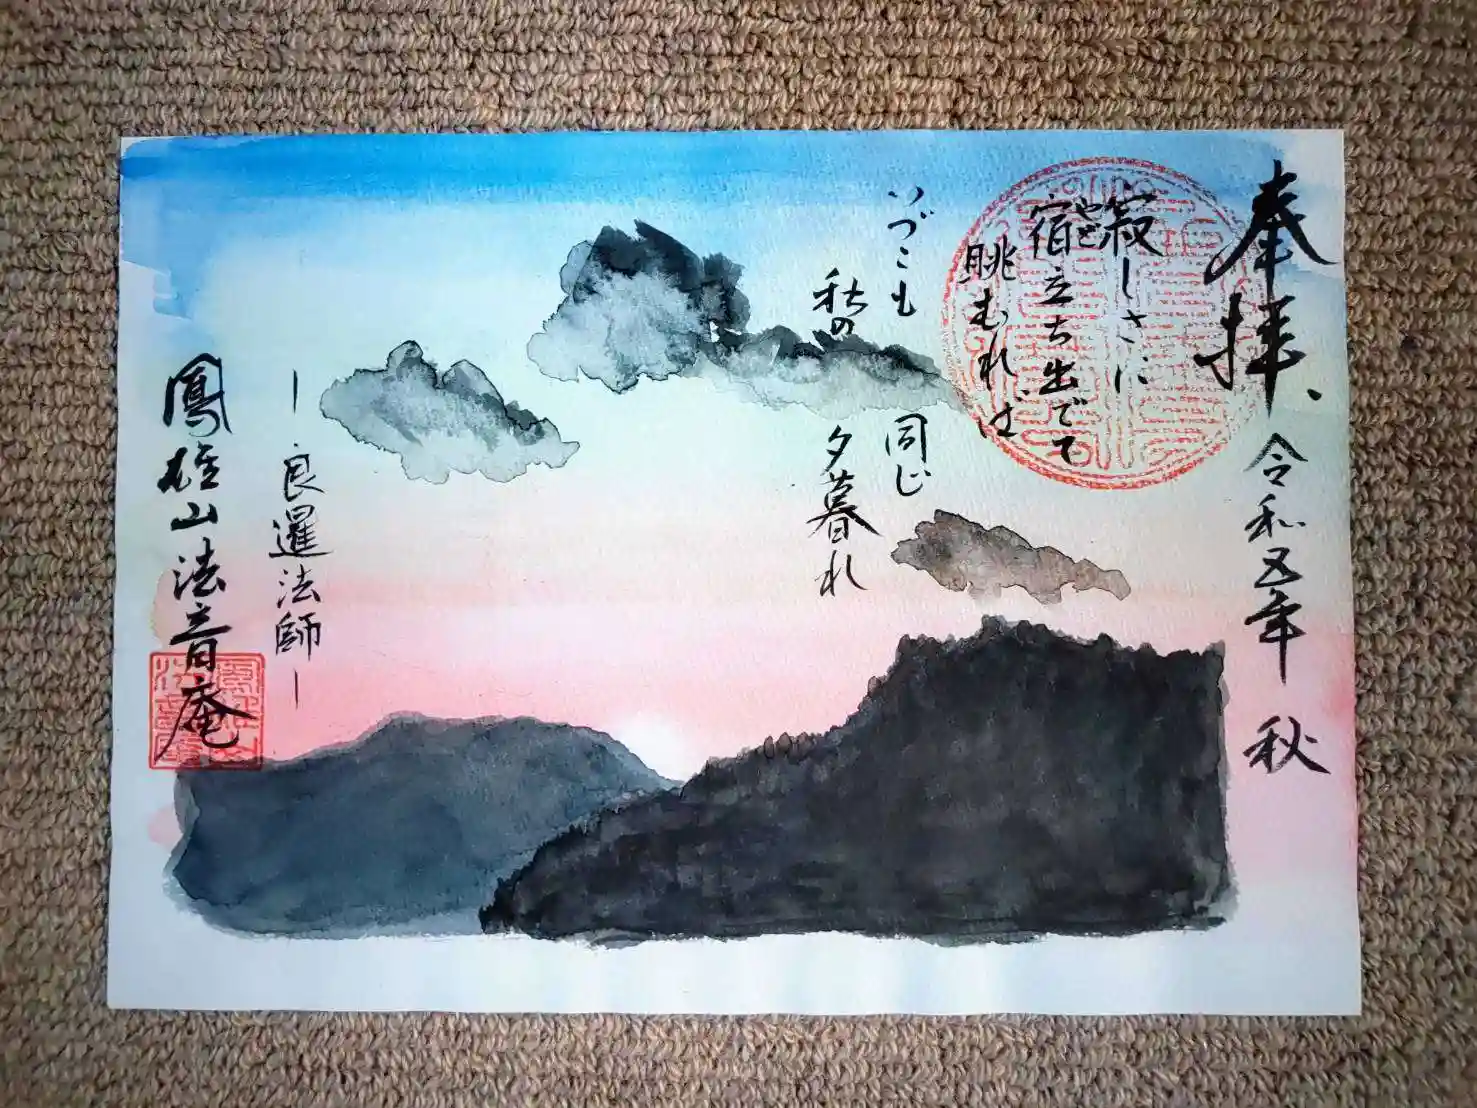 奉拝、
令和五年 秋
寂しさに
宿立ち出でて
やど
眺むれば
いづこも
秋の
同じ
夕暮れ
―良暹法師―
鳳雄山法音庵